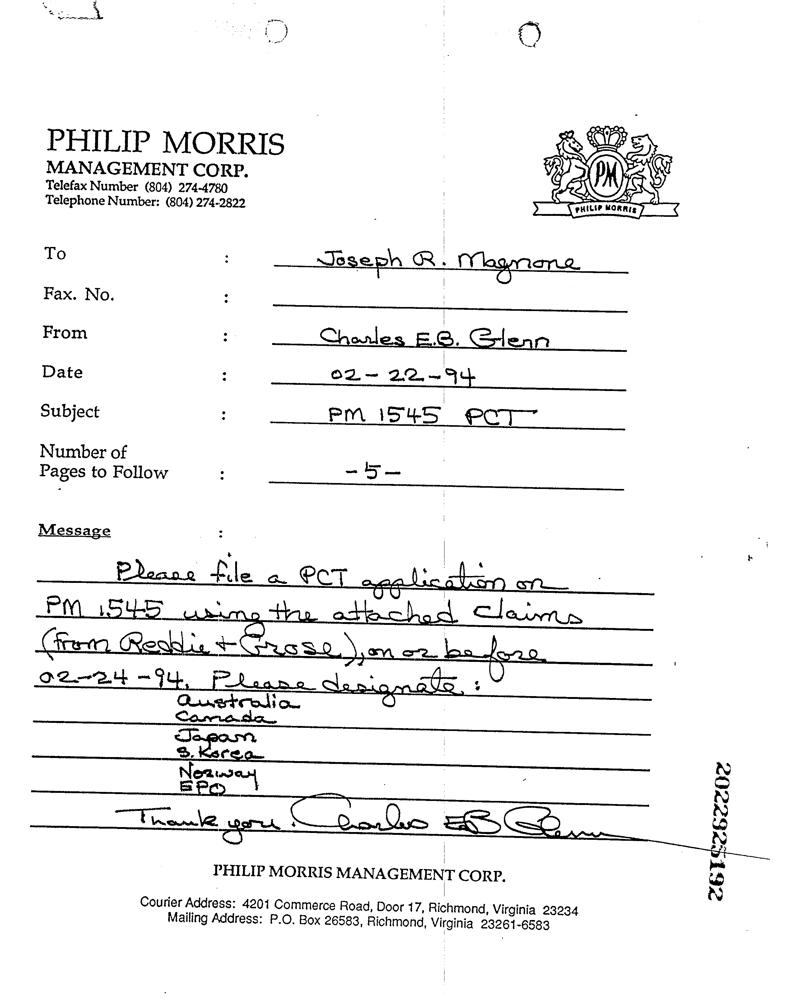 PHILIP MORRIS
MANAGEMENT CORP.
Telefax Number (804) 274-4780
Telephone Number: (804) 274-2822
PM
PHILIP MORRIS
To : Joseph R. Magnone
Fax. No. :
From : Charles E.B. Glenn
Date : 02-22-94
Subject : PM 1545 PCT
Number of
Pages to Follow : -5-
Message :
Please file a PCT application on
PM 1545 using the attached claims
(from Reddie + Grose), on or before
02-24-94. Please designate:
Australia
Canada
Japan
S. Korea
Norway
EPO
Thank you. Charles EB Glenn
2022925192
PHILIP MORRIS MANAGEMENT CORP.
Courier Address: 4201 Commerce Road, Door 17, Richmond, Virginia 23234
Mailing Address: P.O. Box 26583, Richmond, Virginia 23261-6583